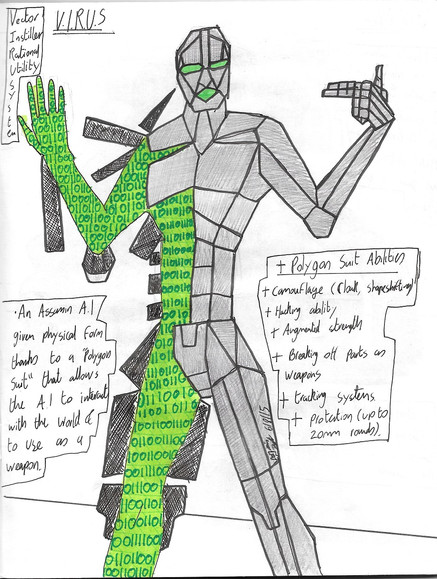 V.I.R.U.S
Vector
Instiller
Rational
Utility
System
+ Polygon Suit Abilities
+ Camouflage (Cloak, shapeshifting)
+ Hacking ability
+ Augmented strength
+ Breaking off parts as
weapons
+ tracking systems
+ protection (up to
20mm rounds).
• An Assassin A.I
given physical form
thanks to a "Polygon
Suit" that allows
the A.I to interact
with the world &
to use as a
weapon.